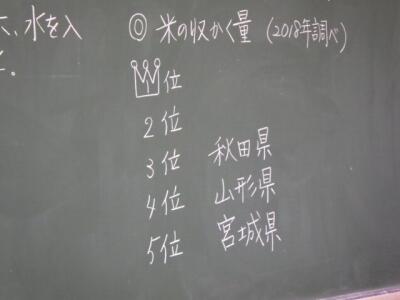 ◎ 米の収かく量 (2018年調べ)
位
2位
3位 秋田県
4位 山形県
5位 宮城県
、水を入
。